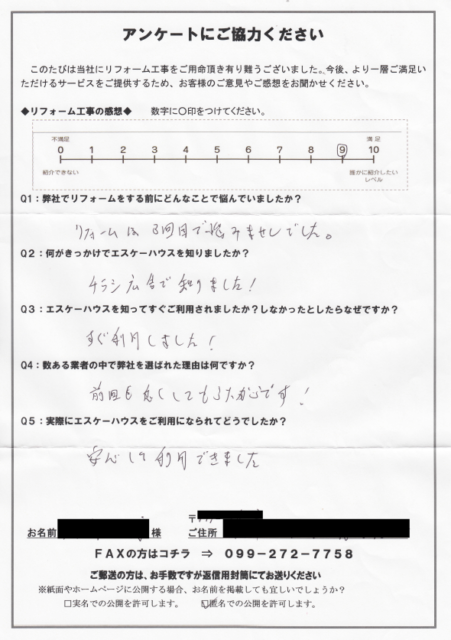 アンケートにご協力ください
このたびは当社にリフォーム工事をご用命頂き有り難うございました。今後、より一層ご満足い
ただけるサービスをご提供するため、お客様のご意見やご感想をお聞かせください。
◆リフォーム工事の感想◆ 数字に〇印をつけてください。
不満足 満足
0 1 2 3 4 5 6 7 8 9 10
紹介できない 誰かに紹介したい
レベル
Q1：弊社でリフォームをする前にどんなことで悩んでいましたか？
リフォームは3回目で悩みませんでした。
Q2：何がきっかけでエスケーハウスを知りましたか？
チラシ広告で知りました！
Q3：エスケーハウスを知ってすぐご利用されましたか？しなかったとしたらなぜですか？
すぐ利用しました！
Q4：数ある業者の中で弊社を選ばれた理由は何ですか？
前回も良くしてもらたからです！
Q5：実際にエスケーハウスをご利用になられてどうでしたか？
安心して利用できました
〒
お名前 様 ご住所
FAXの方はコチラ ⇒ 099-272-7758
ご郵送の方は、お手数ですが返信用封筒にてお送りください
※紙面やホームページに公開する場合、お名前を掲載しても宜しいでしょうか？
□実名での公開を許可します。 □匿名での公開を許可します。